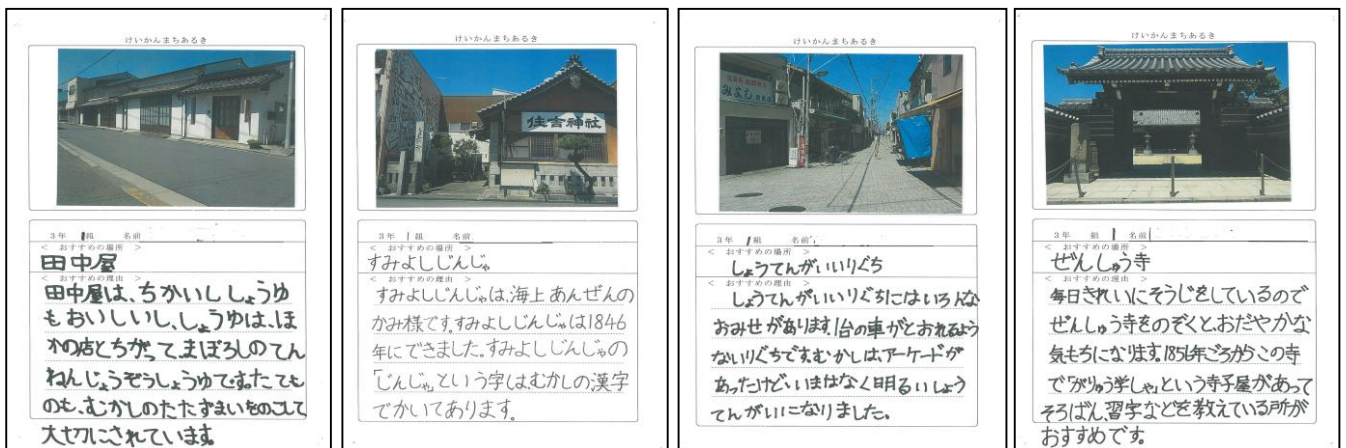 けいかんまちあるき
3年 1組 名前
< おすすめの場所 >
田中屋
< おすすめの理由 >
田中屋は、ちかいししょうゆ
もおいしいし、しょうゆは、ほ
かの店とちがって、まぼろしのてん
ねんじょうぞうしょうゆです。たても
のも、むかしのたたずまいをのこして
大切にされています。
けいかんまちあるき
住吉神社
3年 1組 名前
< おすすめの場所 >
すみよしじんじゃ
< おすすめの理由 >
すみよしじんじゃは、海上あんぜんの
かみ様です。すみよしじんじゃは1846
年にできました。すみよしじんじゃの
「じんじゃ」という字はむかしの漢字
でかいてあります。
けいかんまちあるき
3年 1組 名前
< おすすめの場所 >
しょうてんがいいりぐち
< おすすめの理由 >
しょうてんがいいりぐちにはいろんな
おみせがあります。1台の車がとおれるよう
ないりぐちです。むかしは、アーケードが
あったけど、いまはなく明るいしょう
てんがいになりました。
けいかんまちあるき
3年 組 1 名前
< おすすめの場所 >
ぜんしゅう寺
< おすすめの理由 >
毎日きれいにそうじをしているので
ぜんしゅう寺をのぞくと、おだやかな
気もちになります。1856年ごろからこの寺
で「がりゅう学しゃ」という寺子屋があって
そろばん、習字などを教えている所が
おすすめです。